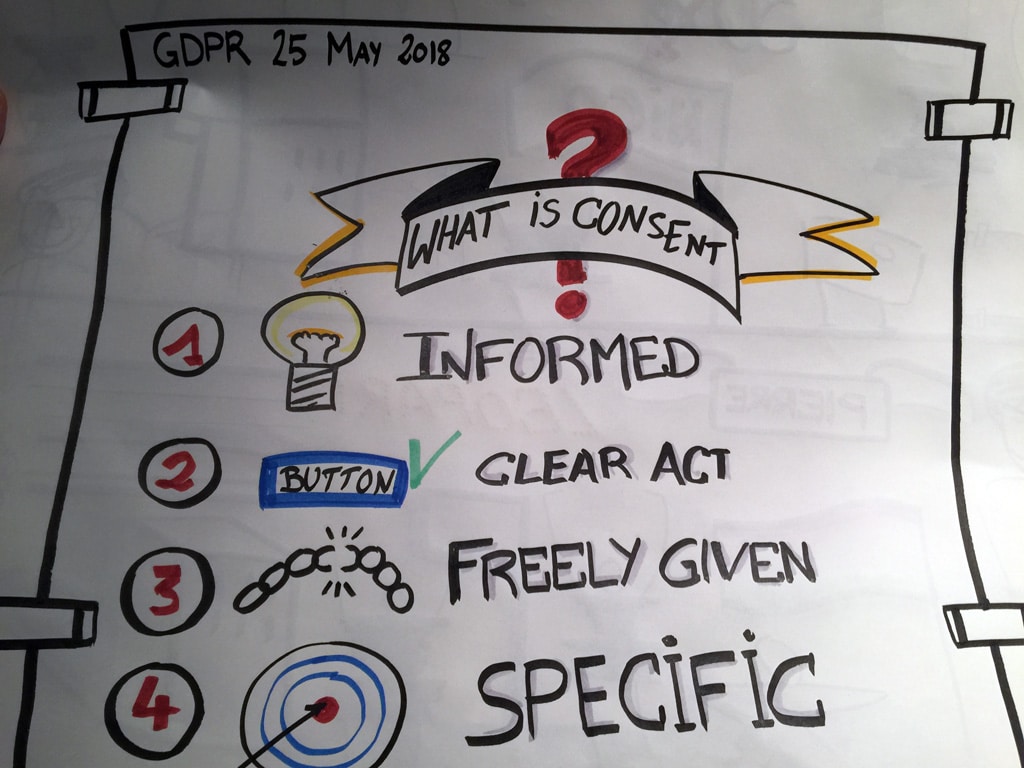 GDPR 25 May 2018
?
WHAT iS CONSENT
!
1 INFORMED
2 BUTTON CLEAR ACT
3 FREELY GIVEN
4 SPECiFiC
PIERRE